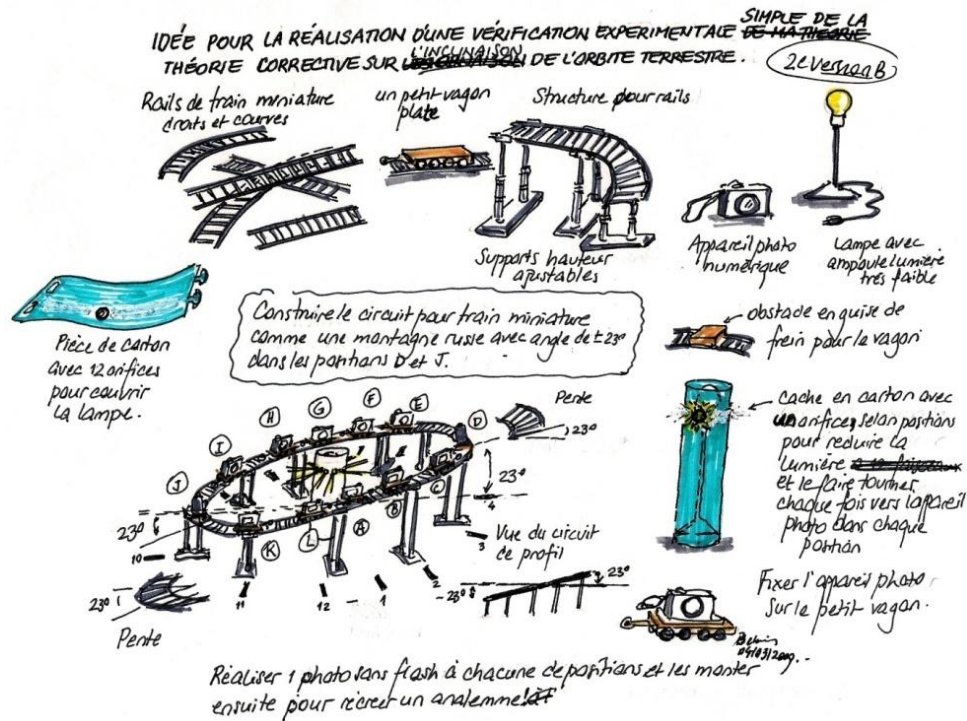 IDÉE POUR LA RÉALISATION D'UNE VÉRIFICATION EXPERIMENTALE SIMPLE DE LA
THÉORIE CORRECTIVE SUR L'INCLINAISON DE L'ORBITE TERRESTRE.
2e version B
Rails de train miniature
droits et courves
un petit vagon
plate
Structure pour rails
Supports hauteur
ajustables
Appareil photo
numérique
Lampe avec
ampoule lumière
très faible
Pièce de carton
avec 12 orifices
pour couvrir
la lampe.
Construire le circuit pour train miniature
comme une montagne rusie avec angle de ± 23°
dans les positions D et J.
obstacle en guise de
frein pour le vagon
cache en carton avec
un orifices selon positions
pour reduire la
lumière
et le faire tourner
chaque fois vers l'appareil
photo dans chaque
position
Pente
23°
H
G
F
E
D
I
J
K
L
A
B
C
23°
4
3
23°
10
11
12
1
2
Vue du circuit
de profil
23°
23°
23°
Pente
Fixer l'appareil photo
sur le petit vagon.
04/03/2009
Réaliser 1 photo sans flash à chacune de positions et les monter
ensuite pour récréer un analemme!